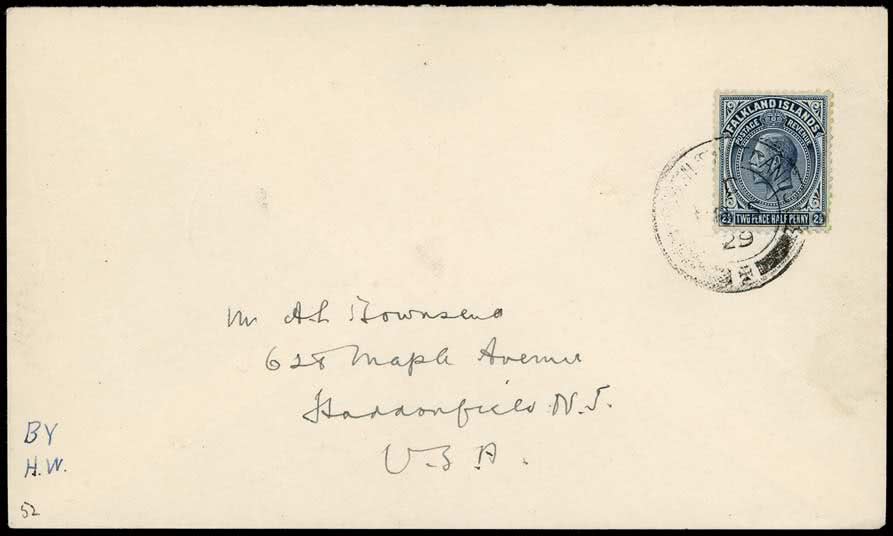 FALKLAND ISLANDS
POSTAGE REVENUE
2½ TWO PENCE HALF PENNY 2½
29
Mr A L Townsend
628 Maple Avenue
Haddonfield N.J.
U.S.A.
BY
H.W.
52